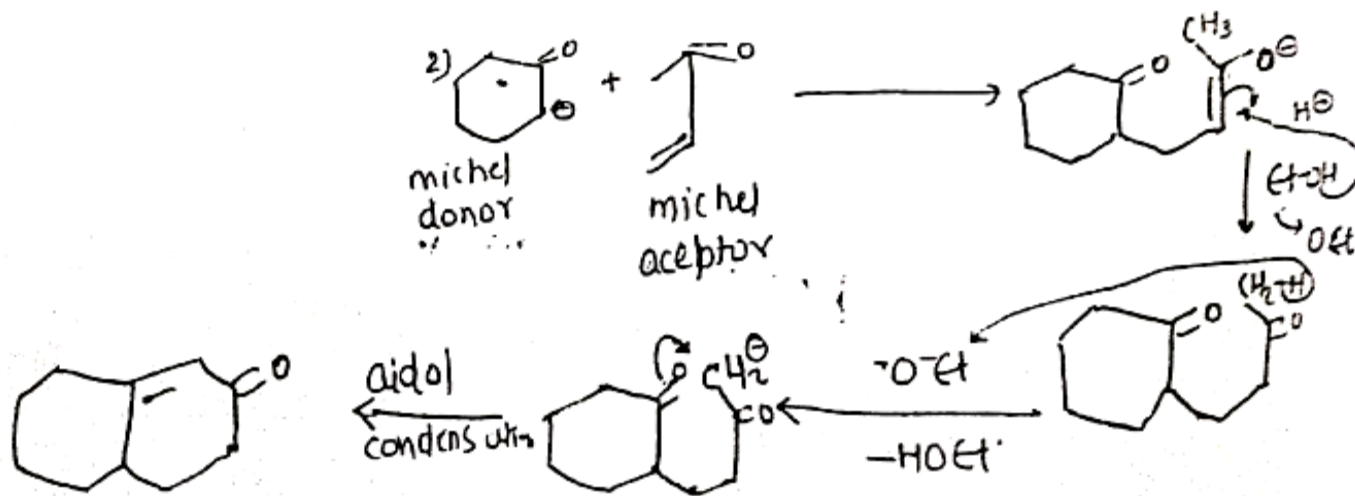 2)
O
+
O
⊖
michel
donor
michel
aceptor
O
CH3
O⊖
H⊖
Et-OH
OEt
CH2-H
O
O
-O-Et
-HOEt
O
CH2⊖
O
aidol
condensation
O